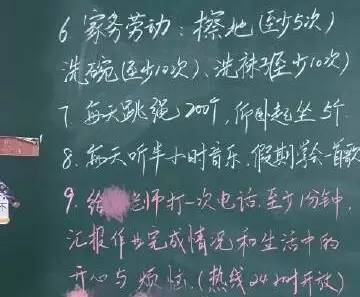 6 家务劳动：擦地(至少5次)
洗碗(至少10次)、洗袜子(至少10次)
7. 每天跳绳200个,仰卧起坐5个.
8. 每天听半小时音乐.假期学会一首歌
9. 给师打一次电话.至少1分钟,
汇报作业完成情况和生活中的
开心与烦恼.(热线24小时开放)